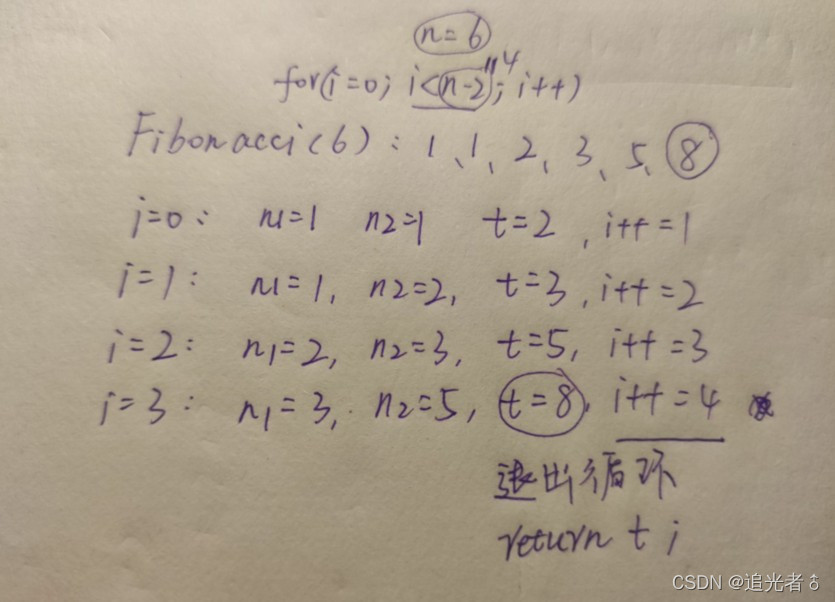 n=6
for(i=0; i<n-2; i++)
"4
Fibonacci(6): 1、1、2、3、5、8
i=0: n1=1 n2=1 t=2, i++=1
i=1: n1=1, n2=2, t=3, i++=2
i=2: n1=2, n2=3, t=5, i++=3
i=3: n1=3, n2=5, t=8, i++=4
退出循环
return t;
CSDN @追光者♂